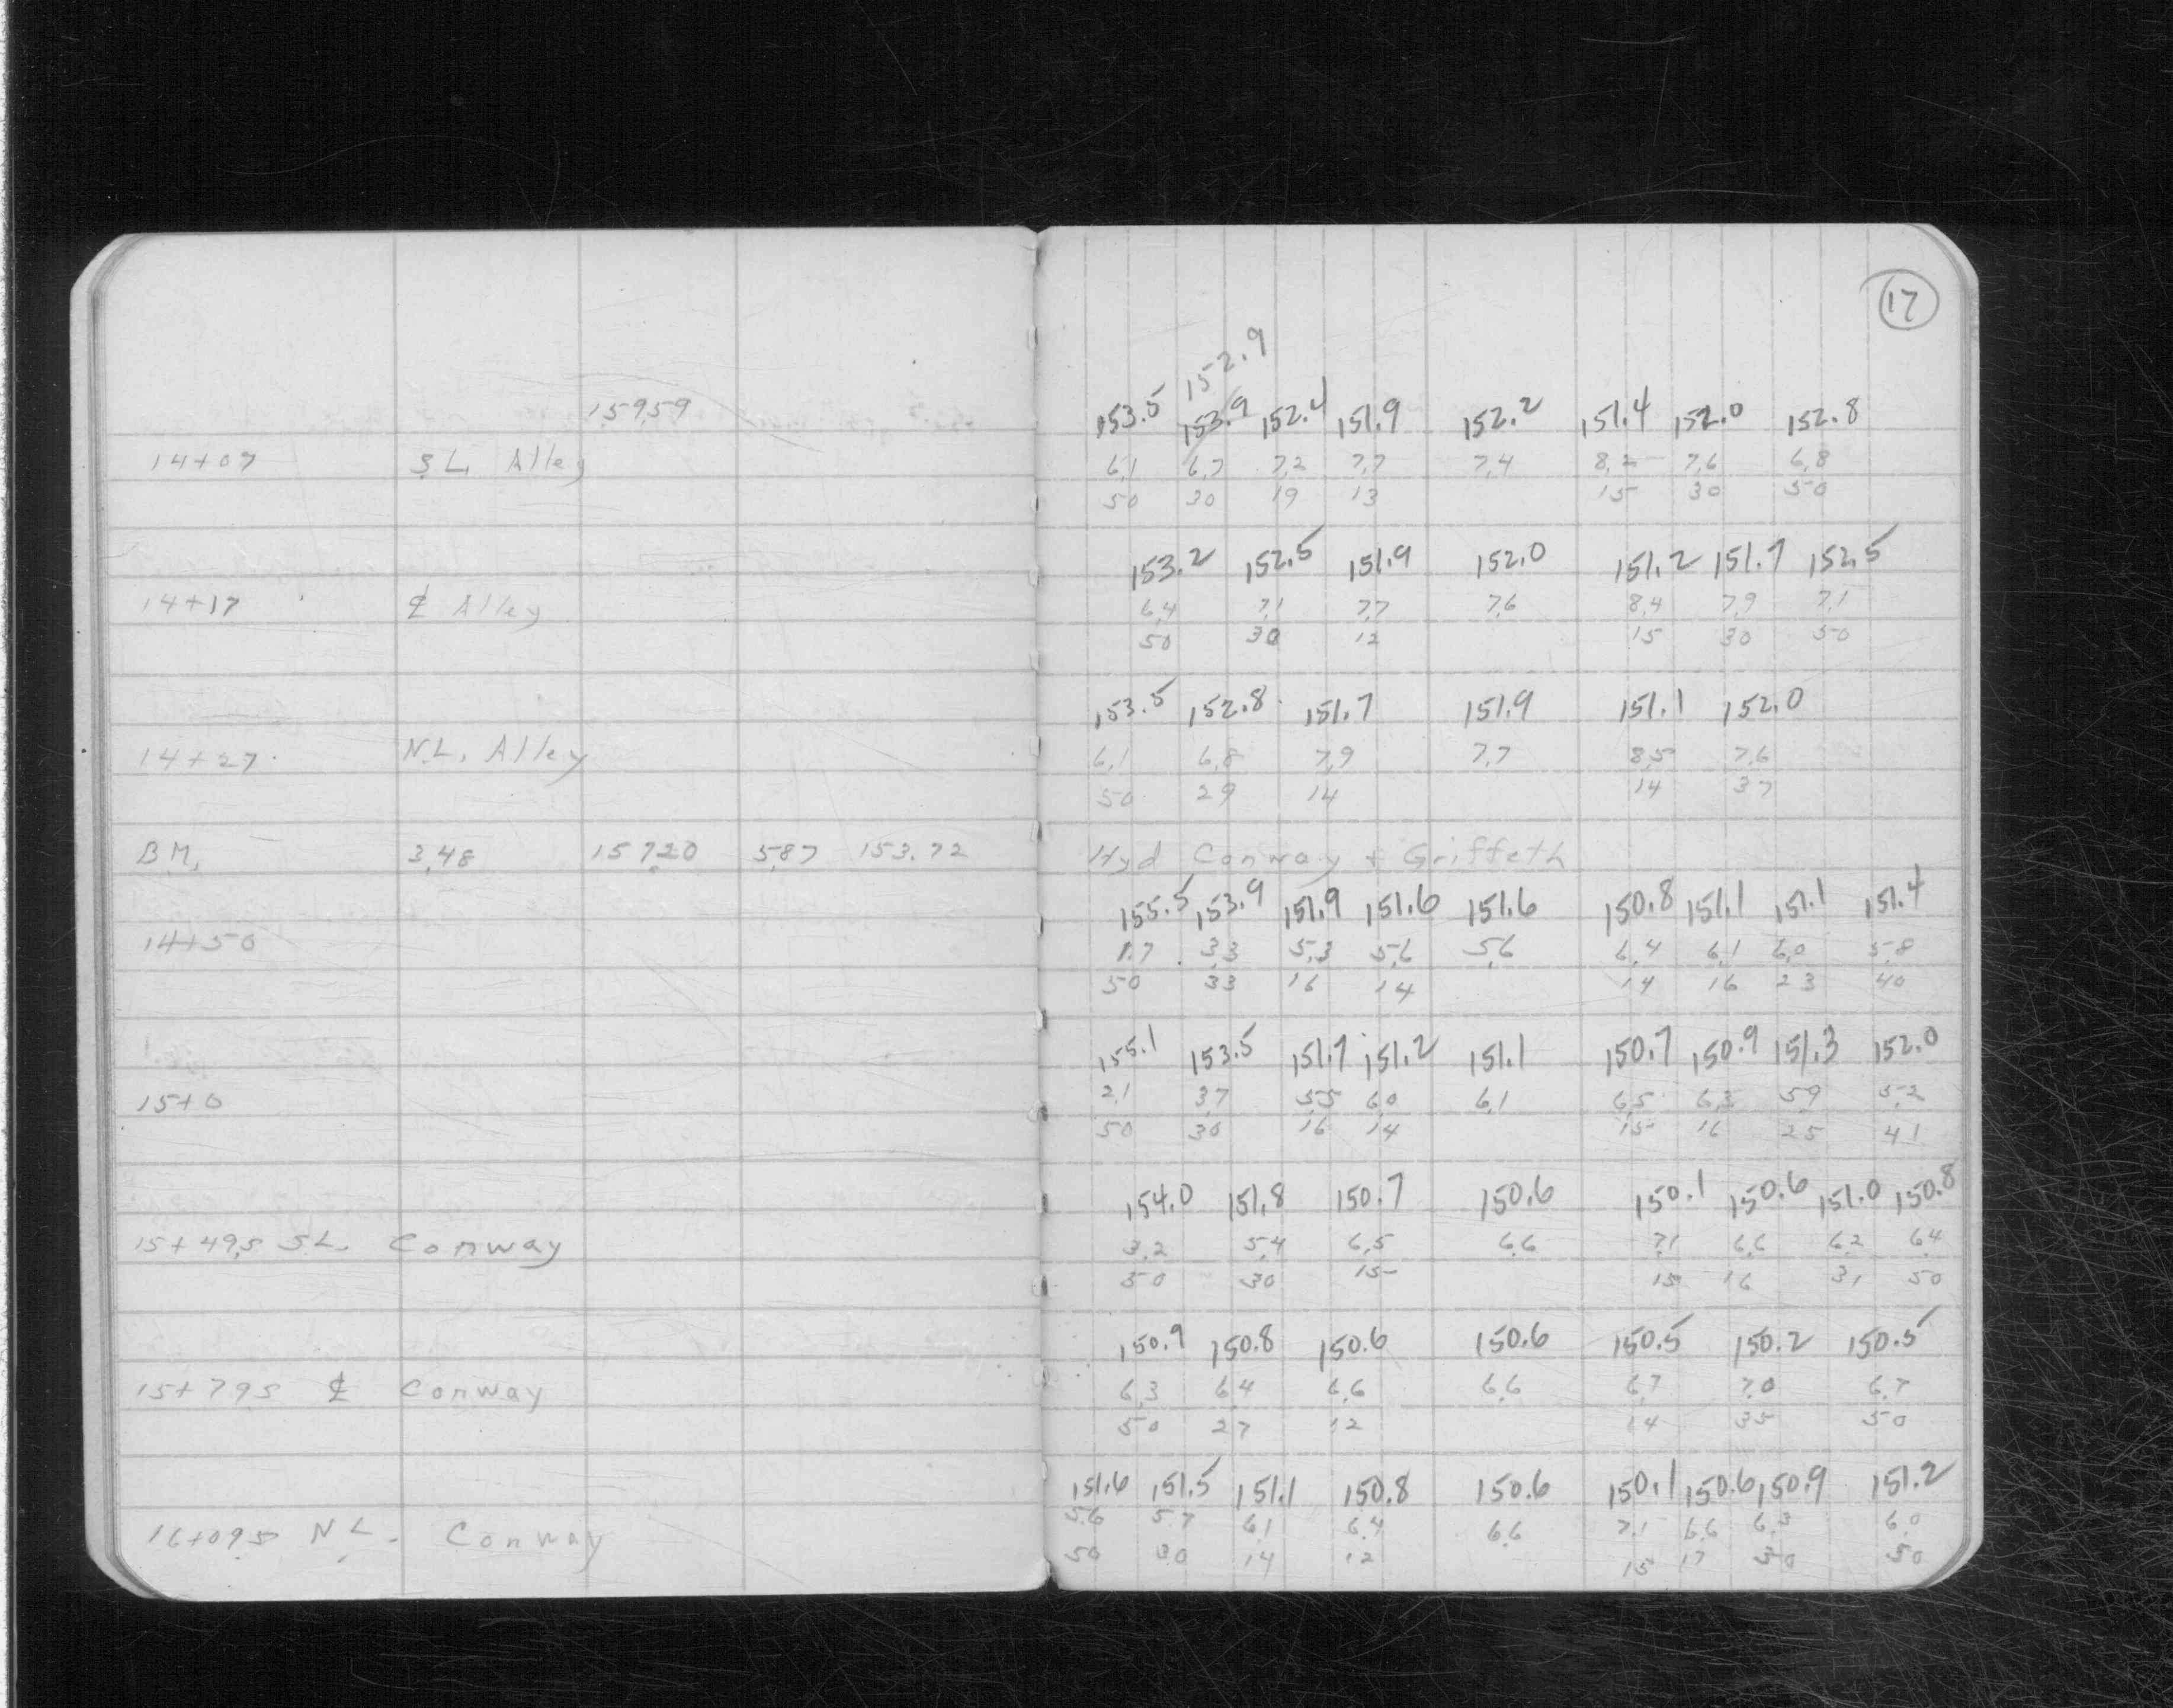 17
152.9
159.59 153.5 153.9 152.4 151.9 152.2 151.4 152.0 152.8
14+07 S.L. Alley 6.1 6.7 7.2 7.7 7.4 8.2 7.6 6.8
50 30 19 13 15 30 50
153.2 152.5 151.9 152.0 151.2 151.7 152.5
14+17 ℄ Alley 6.4 7.1 7.7 7.6 8.4 7.9 7.1
50 30 12 15 30 50
153.5 152.8 151.7 151.9 151.1 152.0
14+27 N.L. Alley 6.1 6.8 7.9 7.7 8.5 7.6
50 29 14 14 37
B.M. 3.48 157.20 5.87 153.72 Hyd Conway + Griffeth
155.5 153.9 151.9 151.6 151.6 150.8 151.1 151.1 151.4
14+50 1.7 3.3 5.3 5.6 5.6 6.4 6.1 6.0 5.8
50 33 16 14 14 16 23 40
155.1 153.5 151.7 151.2 151.1 150.7 150.9 151.3 152.0
15+0 2.1 3.7 5.5 6.0 6.1 6.5 6.3 5.9 5.2
50 30 16 14 15 16 25 41
154.0 151.8 150.7 150.6 150.1 150.6 151.0 150.8
15+49.5 S.L. Conway 3.2 5.4 6.5 6.6 7.1 6.6 6.2 6.4
50 30 15 15 16 31 50
150.9 150.8 150.6 150.6 150.5 150.2 150.5
15+79.5 ℄ Conway 6.3 6.4 6.6 6.6 6.7 7.0 6.7
50 27 12 14 35 50
151.6 151.5 151.1 150.8 150.6 150.1 150.6 150.9 151.2
16+09.5 N.L. Conway 5.6 5.7 6.1 6.4 6.6 7.1 6.6 6.3 6.0
50 30 14 12 15 17 30 50